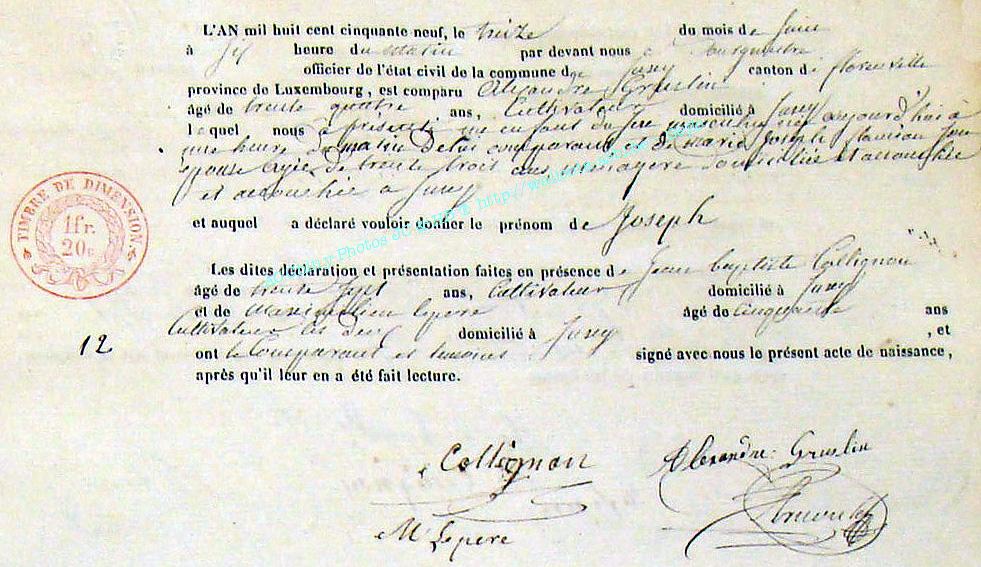 L'AN mil huit cent cinquante neuf, le treize du mois de Juin
à heure du matin par devant nous Bourgmestre
officier de l'état civil de la commune de Jusey canton de florenville
province de Luxembourg, est comparu Alexandre Gruslin
âgé de trente quatre ans, Cultivateur domicilié à Jusey
lequel nous a présenté un enfant du sexe masculin né aujourd'hui à
une heure du matin de lui comparant et de Marie Joseph son
épouse agée de trente trois ans ménagère domiciliée et accouchée
et accouchée a Jusey
et auquel a déclaré vouloir donner le prénom de Joseph
Les dites déclaration et présentation faites en présence de Jean baptiste Collignon
âgé de trente sept ans, Cultivateur domicilié à Jusey
et de Maximilien lepere âgé de Cinquante ans
Cultivateur domicilié à Jusey , et
ont le Comparant et temoins signé avec nous le présent acte de naissance,
après qu'il leur en a été fait lecture.
TIMBRE DE DIMENSION
1fr.
20c
12
Collignon
Alexandre Gruslin
M Lepere
Photos
http://